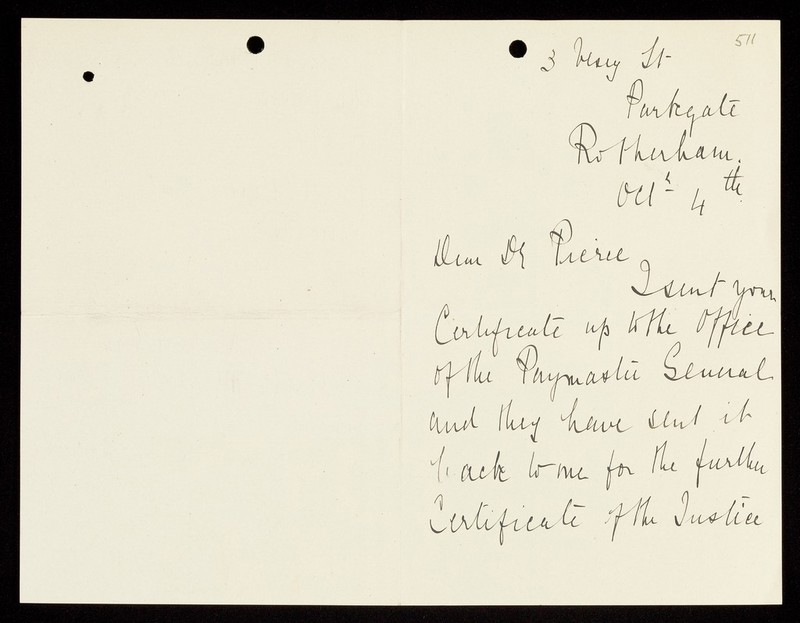 511
3 Vesey St
Parkgate
Rotherham.
Oct 4th
Dear Dr Pierce
I sent your
Certificate up to the Office
of the Paymaster General
and they have sent it
back to me for the further
Certificate of the Justice